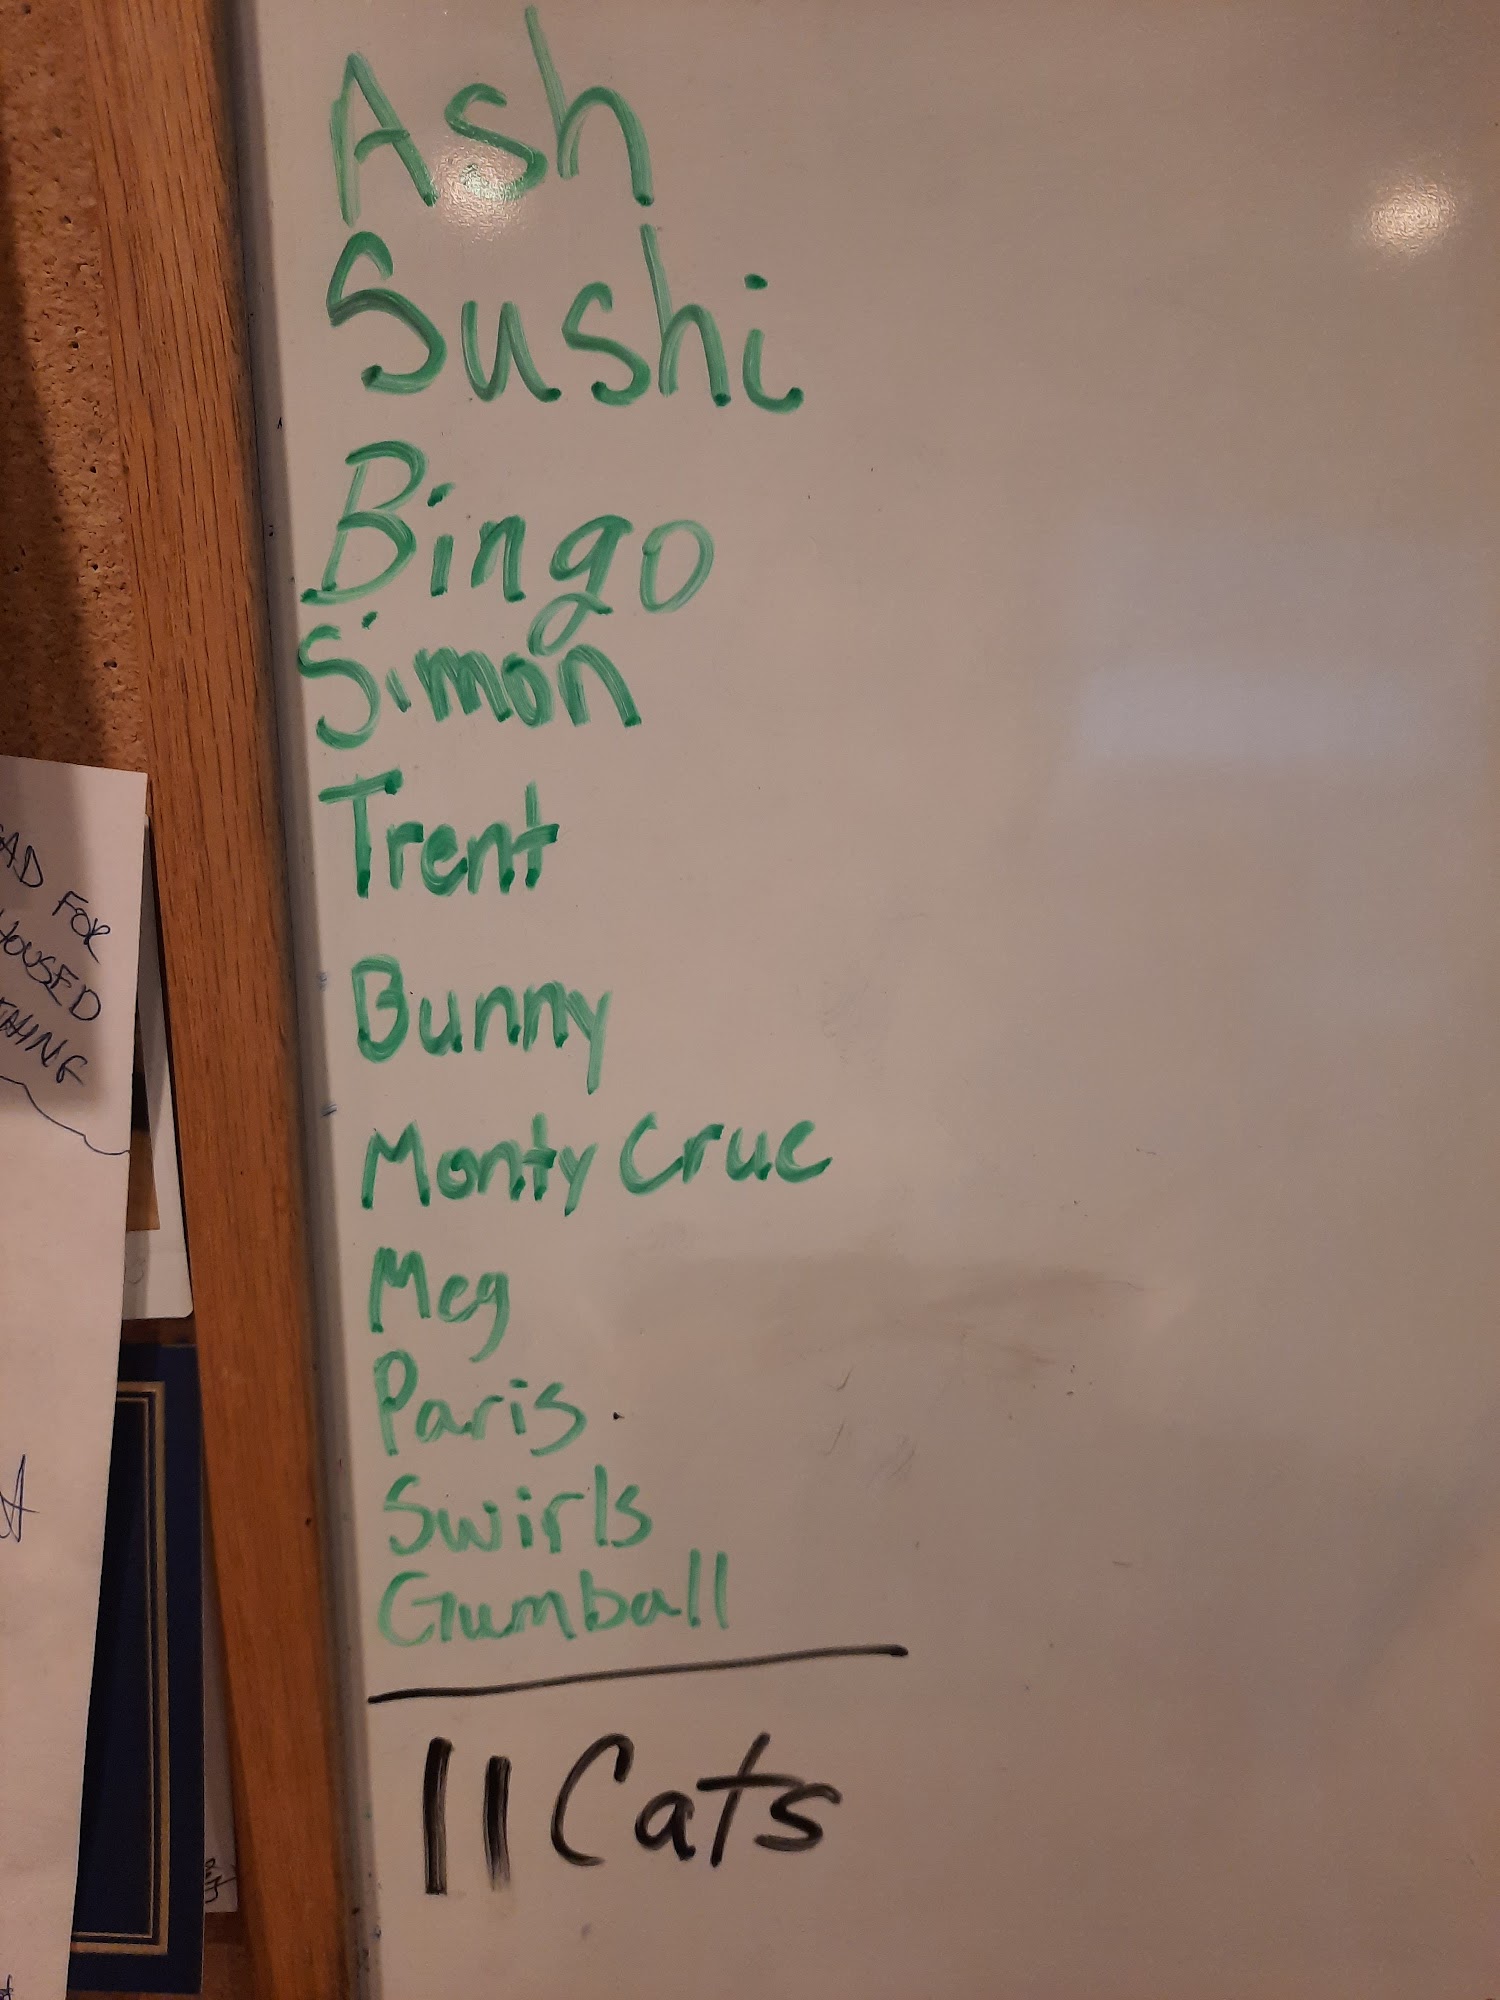 Ash
Sushi
Bingo
Simon
Trent
Bunny
Monty Crue
Meg
Paris
Swirls
Gumball
11 Cats
FOR
HOUSED